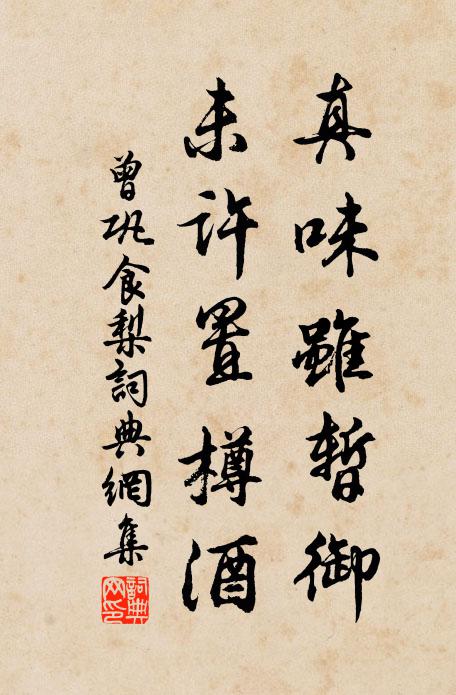 真味雖暫御
未許置樽酒
曾巩食梨詞典網集
詞典網印